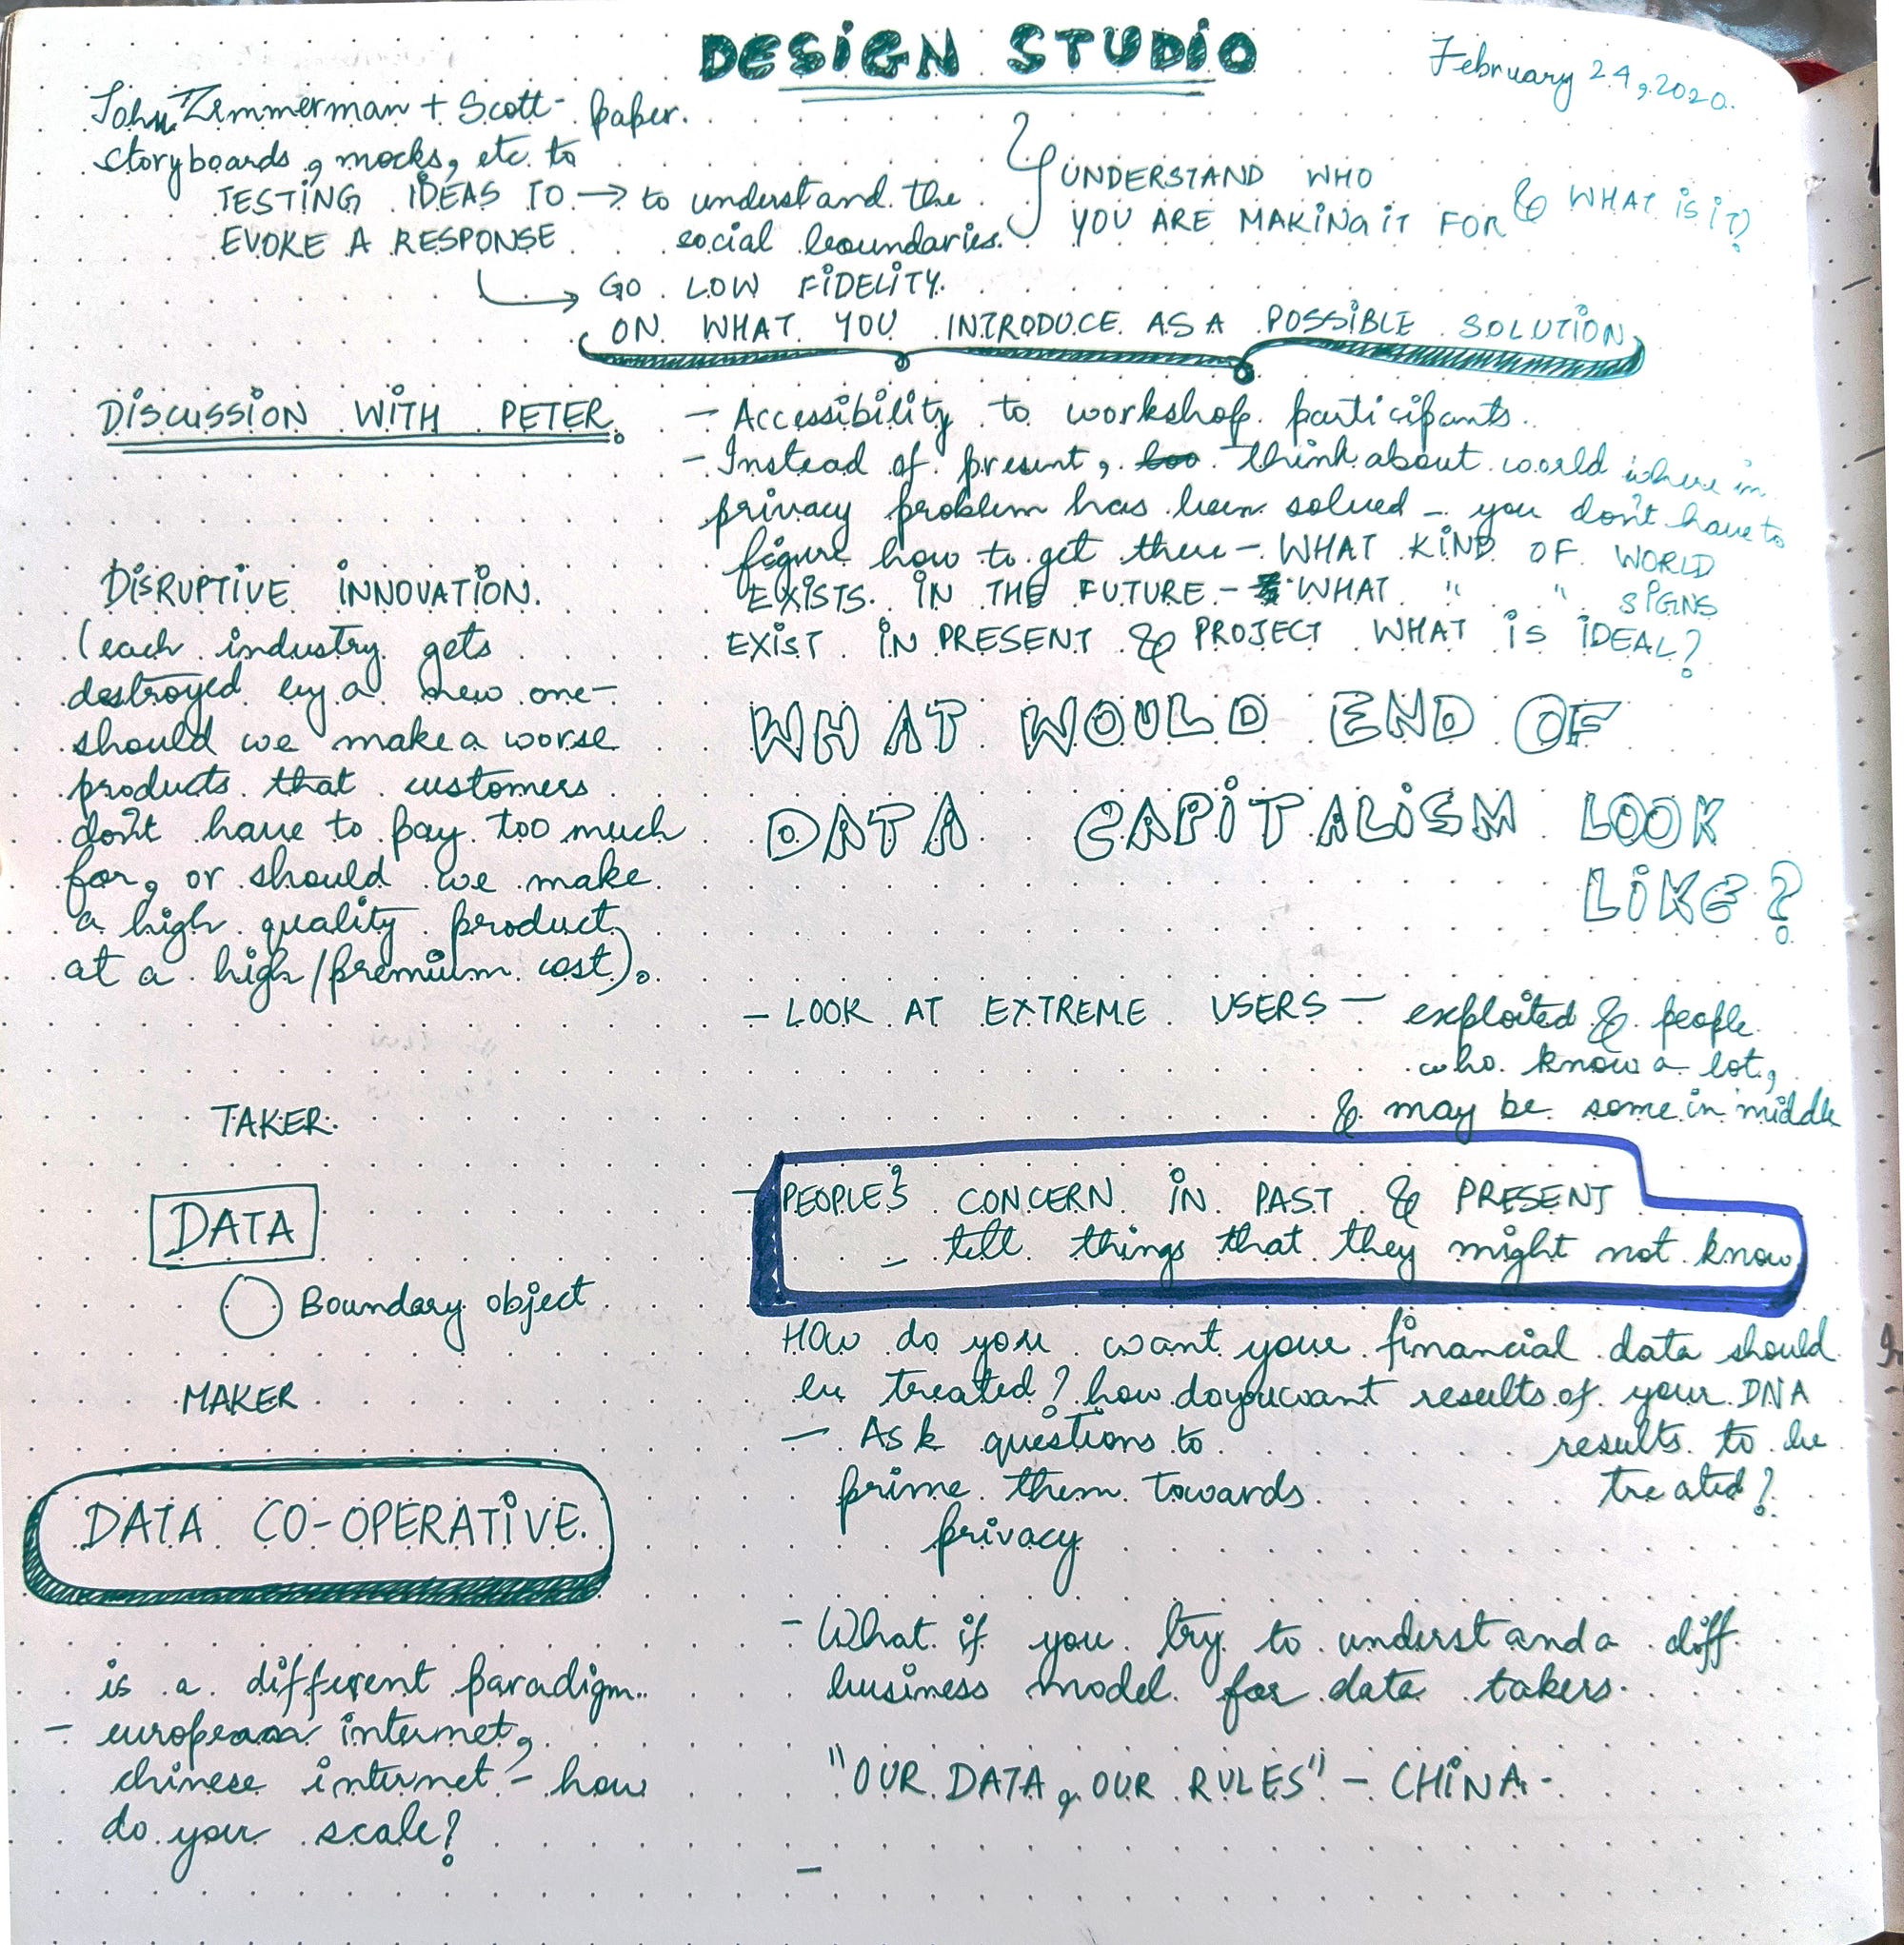 DESIGN STUDIO
February 24, 2020.
John Zimmerman + Scott - paper.
storyboards, mocks, etc. to
TESTING IDEAS TO → to understand the
EVOKE A RESPONSE social boundaries.
UNDERSTAND WHO
YOU ARE MAKING IT FOR & WHAT IS IT?
GO LOW FIDELITY.
ON WHAT YOU INTRODUCE AS A POSSIBLE SOLUTION
DISCUSSION WITH PETER.
- Accessibility to workshop participants.
- Instead of present, think about world where in
privacy problem has been solved - you don't have to
figure how to get there - WHAT KIND OF WORLD
EXISTS IN THE FUTURE - WHAT " " SIGNS
EXIST IN PRESENT & PROJECT WHAT IS IDEAL?
WHAT WOULD END OF
DATA CAPITALISM LOOK
LIKE?
- LOOK AT EXTREME USERS - exploited & people
who know a lot,
& may be some in middle
- PEOPLE'S CONCERN IN PAST & PRESENT
- tell things that they might not know
How do you want your financial data should
be treated? how do you want results of your DNA
results to be
treated?
- Ask questions to
prime them towards
privacy
- What if you try to understand a diff
business model for data takers.
"OUR DATA, OUR RULES" - CHINA -
-
DISRUPTIVE INNOVATION.
(each industry gets
destroyed by a new one -
should we make a worse
products that customers
don't have to pay too much
for, or should we make
a high quality product
at a high/premium cost).
TAKER.
DATA
Boundary object
MAKER
DATA CO-OPERATIVE.
is a different paradigm.
- european internet,
chinese internet - how
do you scale?